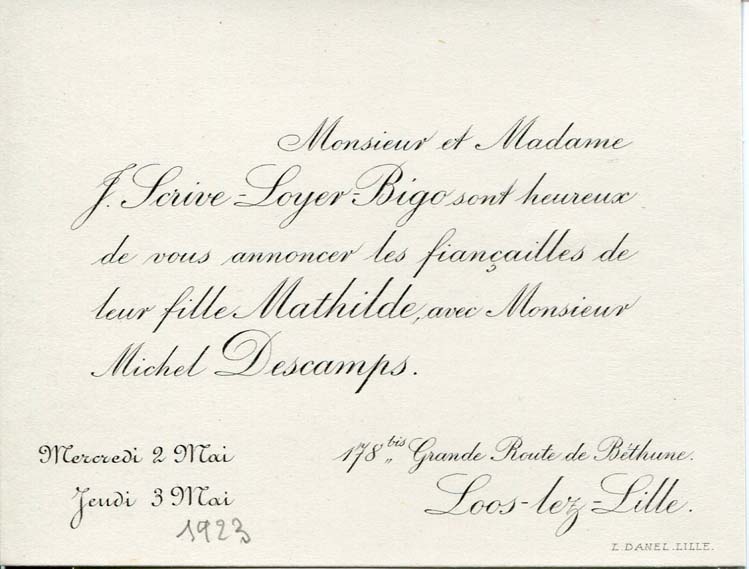 Monsieur et Madame
J. Scrive-Loyer-Bigo sont heureux
de vous annoncer les fiançailles de
leur fille Mathilde, avec Monsieur
Michel Descamps.
Mercredi 2 Mai
Jeudi 3 Mai
1923
178 bis„ Grande Route de Béthune.
Loos-lez-Lille.
L. DANEL. LILLE.